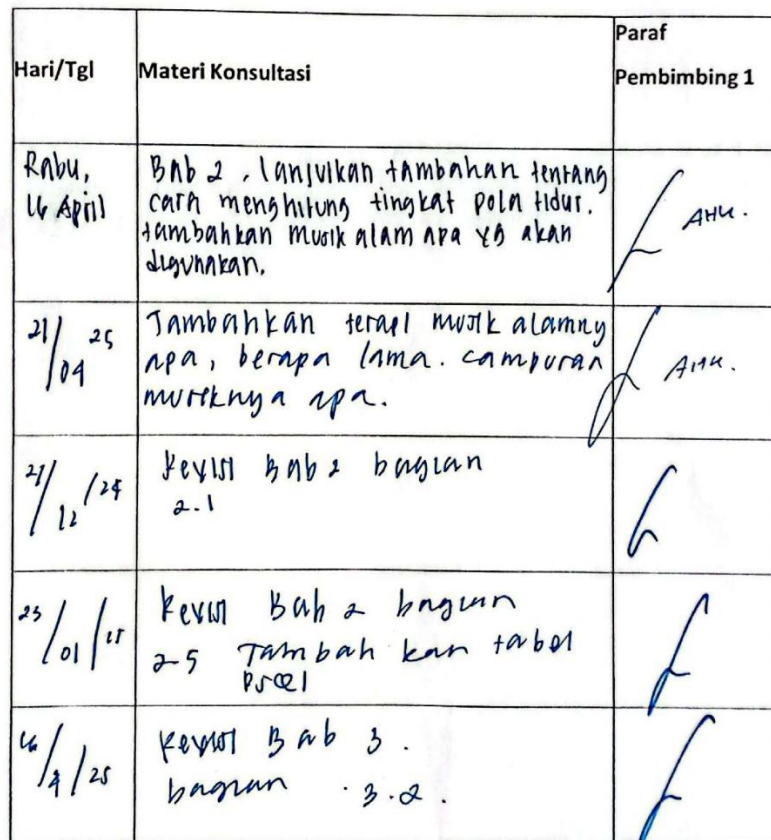 Hari/Tgl
Materi Konsultasi
Paraf
Pembimbing 1
Rabu,
16 April
Bab 2, lanjutkan tambahan tentang
cara menghitung tingkat pola tidur.
tambahkan musik alam apa yg akan
digunakan.
21/04 25
Tambahkan terapi musik alamny
apa, berapa lama. campuran
musiknya apa.
/12/24
Revisi Bab 2 bagian
2.1
23/01/25
Revisi Bab 2 bagian
2-5 Tambah kan tabel
16/4/25
Revisi Bab 3.
bagian . 3.2.